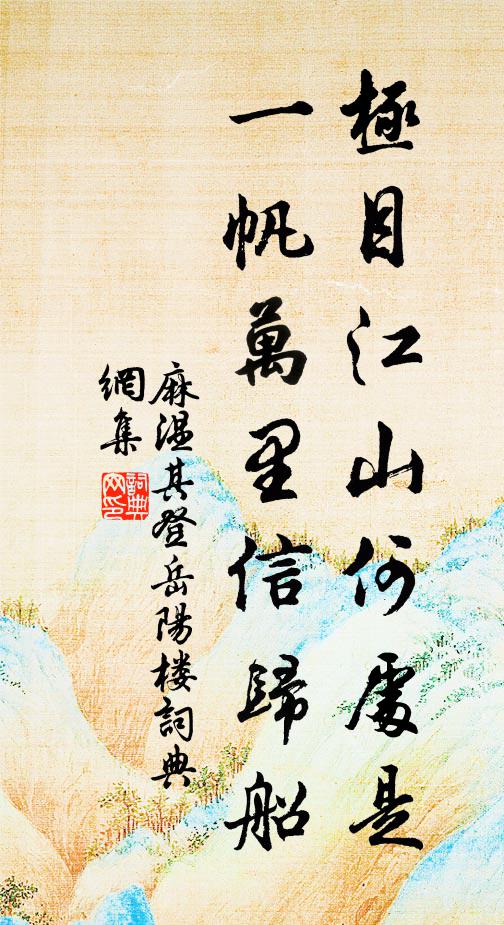 極目江山何處是
一帆萬里信歸船
麻溫其登岳陽楼詞典
網集
詞典
网印